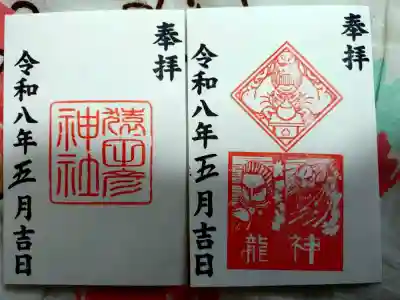 奉拝
猿田彦神社
令和八年五月吉日
奉拝
龍神
令和八年五月吉日